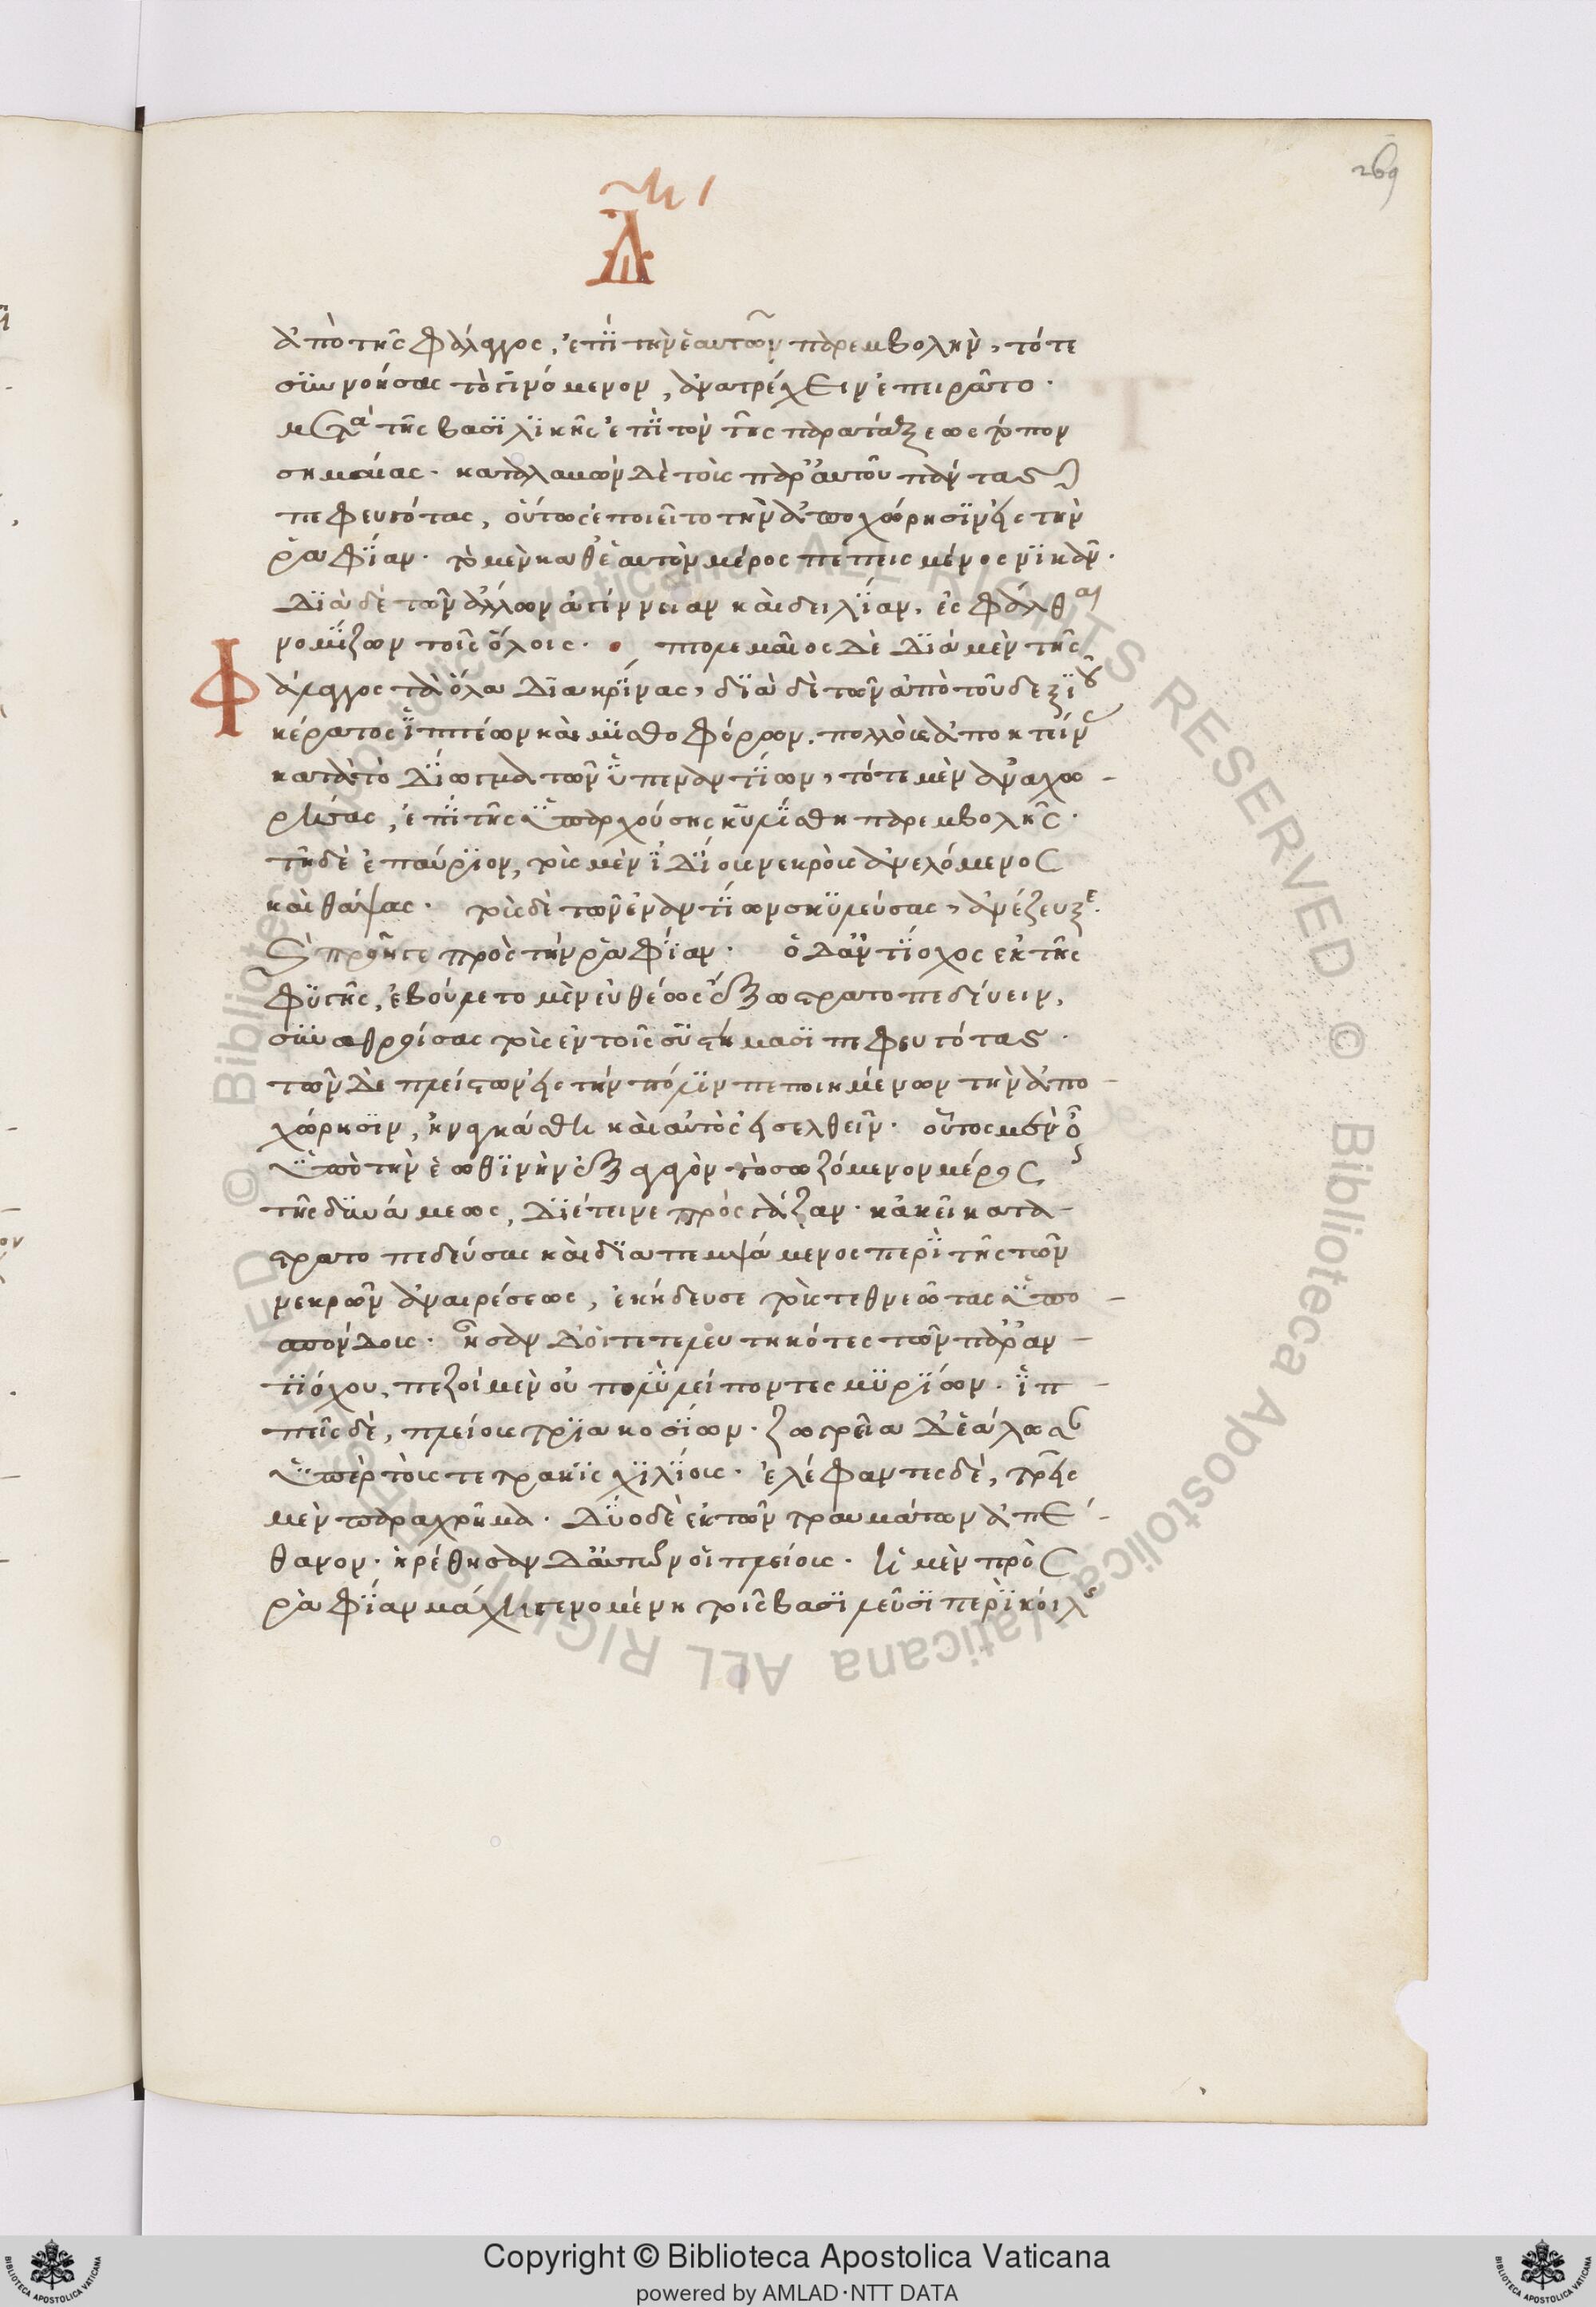 269
ἀπὸ τῆς φάλαγγος, ἐπὶ τὴν ἑαυτῶν παρεμβολὴν, τότε
συννοήσας τὸ γινόμενον, ἀνατρέχειν ἐπειρᾶτο·
μετὰ τῆς βασιλικῆς ἐπὶ τὸν τῆς παρατάξεως τόπον
σημαίας· καταλαβὼν δὲ τοὺς παρ' αὐτοῦ πάντας
πεφευγότας, οὕτως ἐποιεῖτο τὴν ἀποχώρησιν εἰς τὴν
ῥαφίαν· τὸ μὲν καθ' ἑαυτὸν μέρος πεπεισμένος νικᾶν·
διὰ δὲ τῶν ἄλλων ἀγέννειαν καὶ δειλίαν, ἐσφάλθαι
νομίζων τοῖς ὅλοις· πτολεμαῖος δὲ διὰ μὲν τῆς
Φάλαγγος τὰ ὅλα διακρίνας, διὰ δὲ τῶν ἀπὸ τοῦ δεξιοῦ
κέρατος ἱππέων καὶ μισθοφόρων, πολλοὺς ἀποκτείνας
κατὰ τὸ δίωγμα τῶν ὑπεναντίων, τότε μὲν ἀναχω-
ρήσας, ἐπὶ τῆς ὑπαρχούσης ηὐλίσθη παρεμβολῆς·
τῇ δὲ ἐπαύριον, τοὺς μὲν ἰδίους νεκροὺς ἀνελόμενος
καὶ θάψας· τοὺς δὲ τῶν ἐναντίων σκυλεύσας, ἀνέζευξε·
καὶ προῆγε πρὸς τὴν ῥαφίαν· ὁ δ' ἀντίοχος ἐκ τῆς
φυγῆς, ἐβούλετο μὲν εὐθέως ἔξω στρατοπεδεύειν,
συναθροίσας τοὺς ἐν τοῖς συστήμασι πεφευγότας·
τῶν δὲ πλείστων εἰς τὴν πόλιν πεποιημένων τὴν ἀπο-
χώρησιν, ἠναγκάσθη καὶ αὐτὸς εἰσελθεῖν· οὗτος μὲν οὖν
ὑπὸ τὴν ἑωθινὴν ἐξαγαγὼν τὸ σωζόμενον μέρος
τῆς δυνάμεως, διέτεινε πρὸς γάζαν· κἀκεῖ κατα-
στρατοπεδεύσας καὶ διαπεμψάμενος περὶ τῆς τῶν
νεκρῶν ἀναιρέσεως, ἐκήδευσε τοὺς τεθνεῶτας ὑπο-
σπόνδους· ἦσαν δ' οἱ τετελευτηκότες τῶν παρ' ἀν-
τιόχου, πεζοὶ μὲν οὐ πολὺ λείποντες μυρίων· ἱπ-
πεῖς δὲ, πλείους τριακοσίων· ζωγρεῖα δ' ἑάλωσαν
ὑπὲρ τοὺς τετρακισχιλίους· ἐλέφαντες δὲ, τρεῖς
μὲν παραχρῆμα· δύο δὲ ἐκ τῶν τραυμάτων ἀπέ-
θανον· ἡρέθησαν δ' αὐτῶν οἱ πλείους· ἡ μὲν πρὸς
ῥαφίαν μάχη γενομένη τοῖς βασιλεῦσι περὶ κοίλης
Copyright © Biblioteca Apostolica Vaticana
powered by AMLAD·NTT DATA